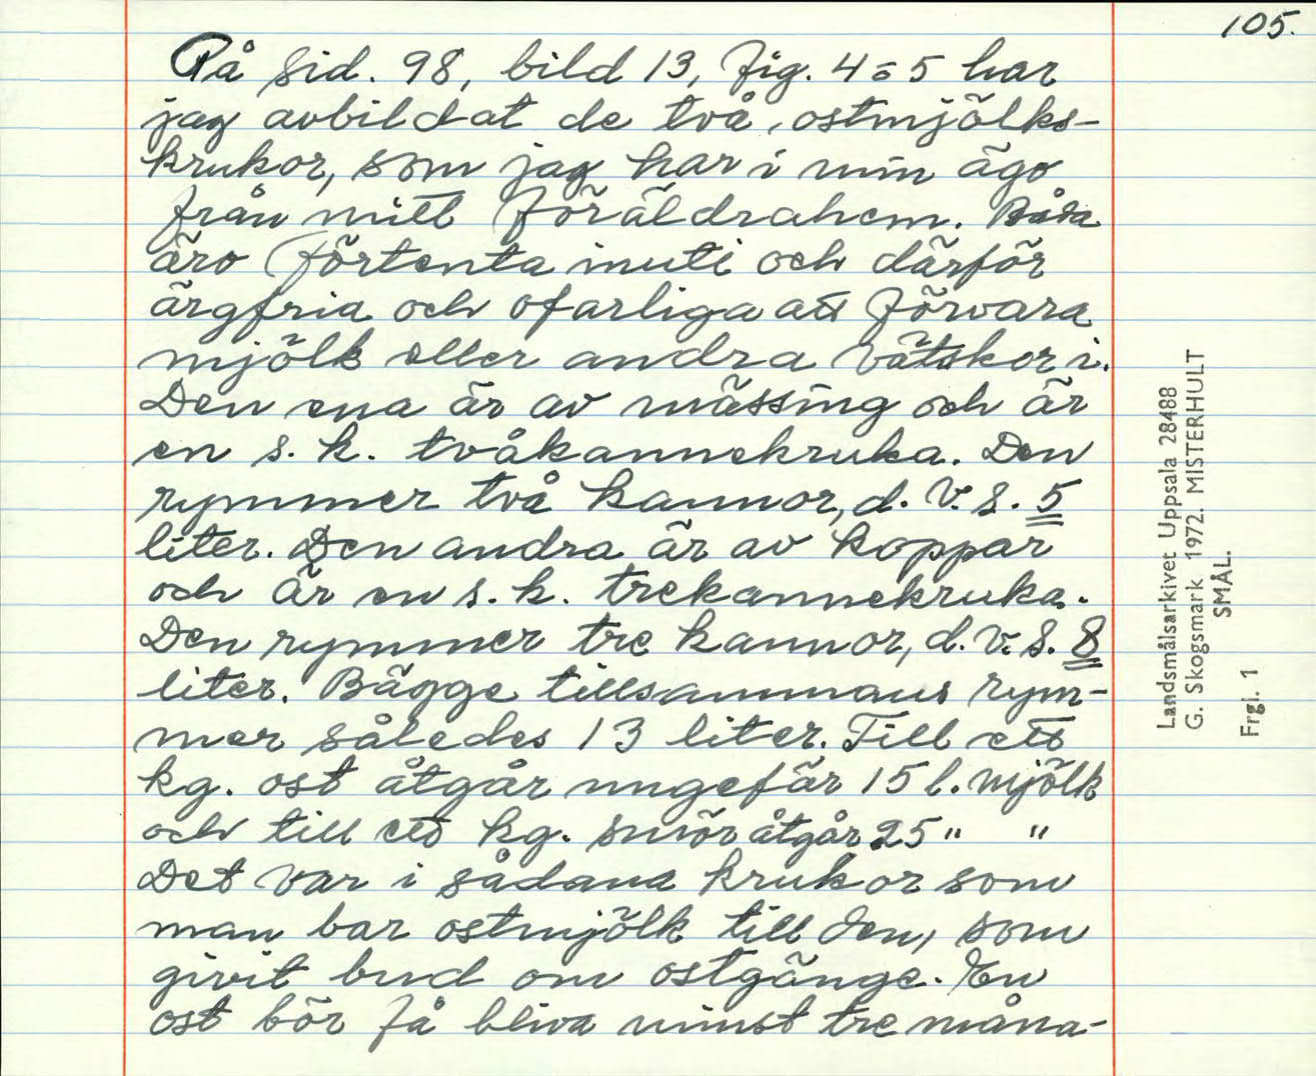 105.
På sid. 98, bild 13, fig. 4 o 5 har
jag avbildat de två ostmjölks-
krukor, som jag har i min ägo
från mitt föräldrahem. Båda
äro förtenta inuti och därför
ärgfria och ofarliga att förvara
mjölk eller andra vätskor i.
Den ena är av mässing och är
en s. k. tvåkannekruka. Den
rymmer två kannor, d. v. s. 5
liter. Den andra är av koppar
och är en s. k. trekannekruka.
Den rymmer tre kannor, d. v. s. 8
liter. Bägge tillsammans rym-
mer således 13 liter. Till ett
kg. ost åtgår ungefär 15 l. mjölk
och till ett kg. smör åtgår 25 " "
Det var i sådana krukor som
man bar ostmjölk till den, som
givit bud om ostgänge. En
ost bör få bliva minst tre måna-
Landsmålsarkivet Uppsala 28488
G. Skogsmark 1972. MISTERHULT
SMÅL.
Frgl. 1